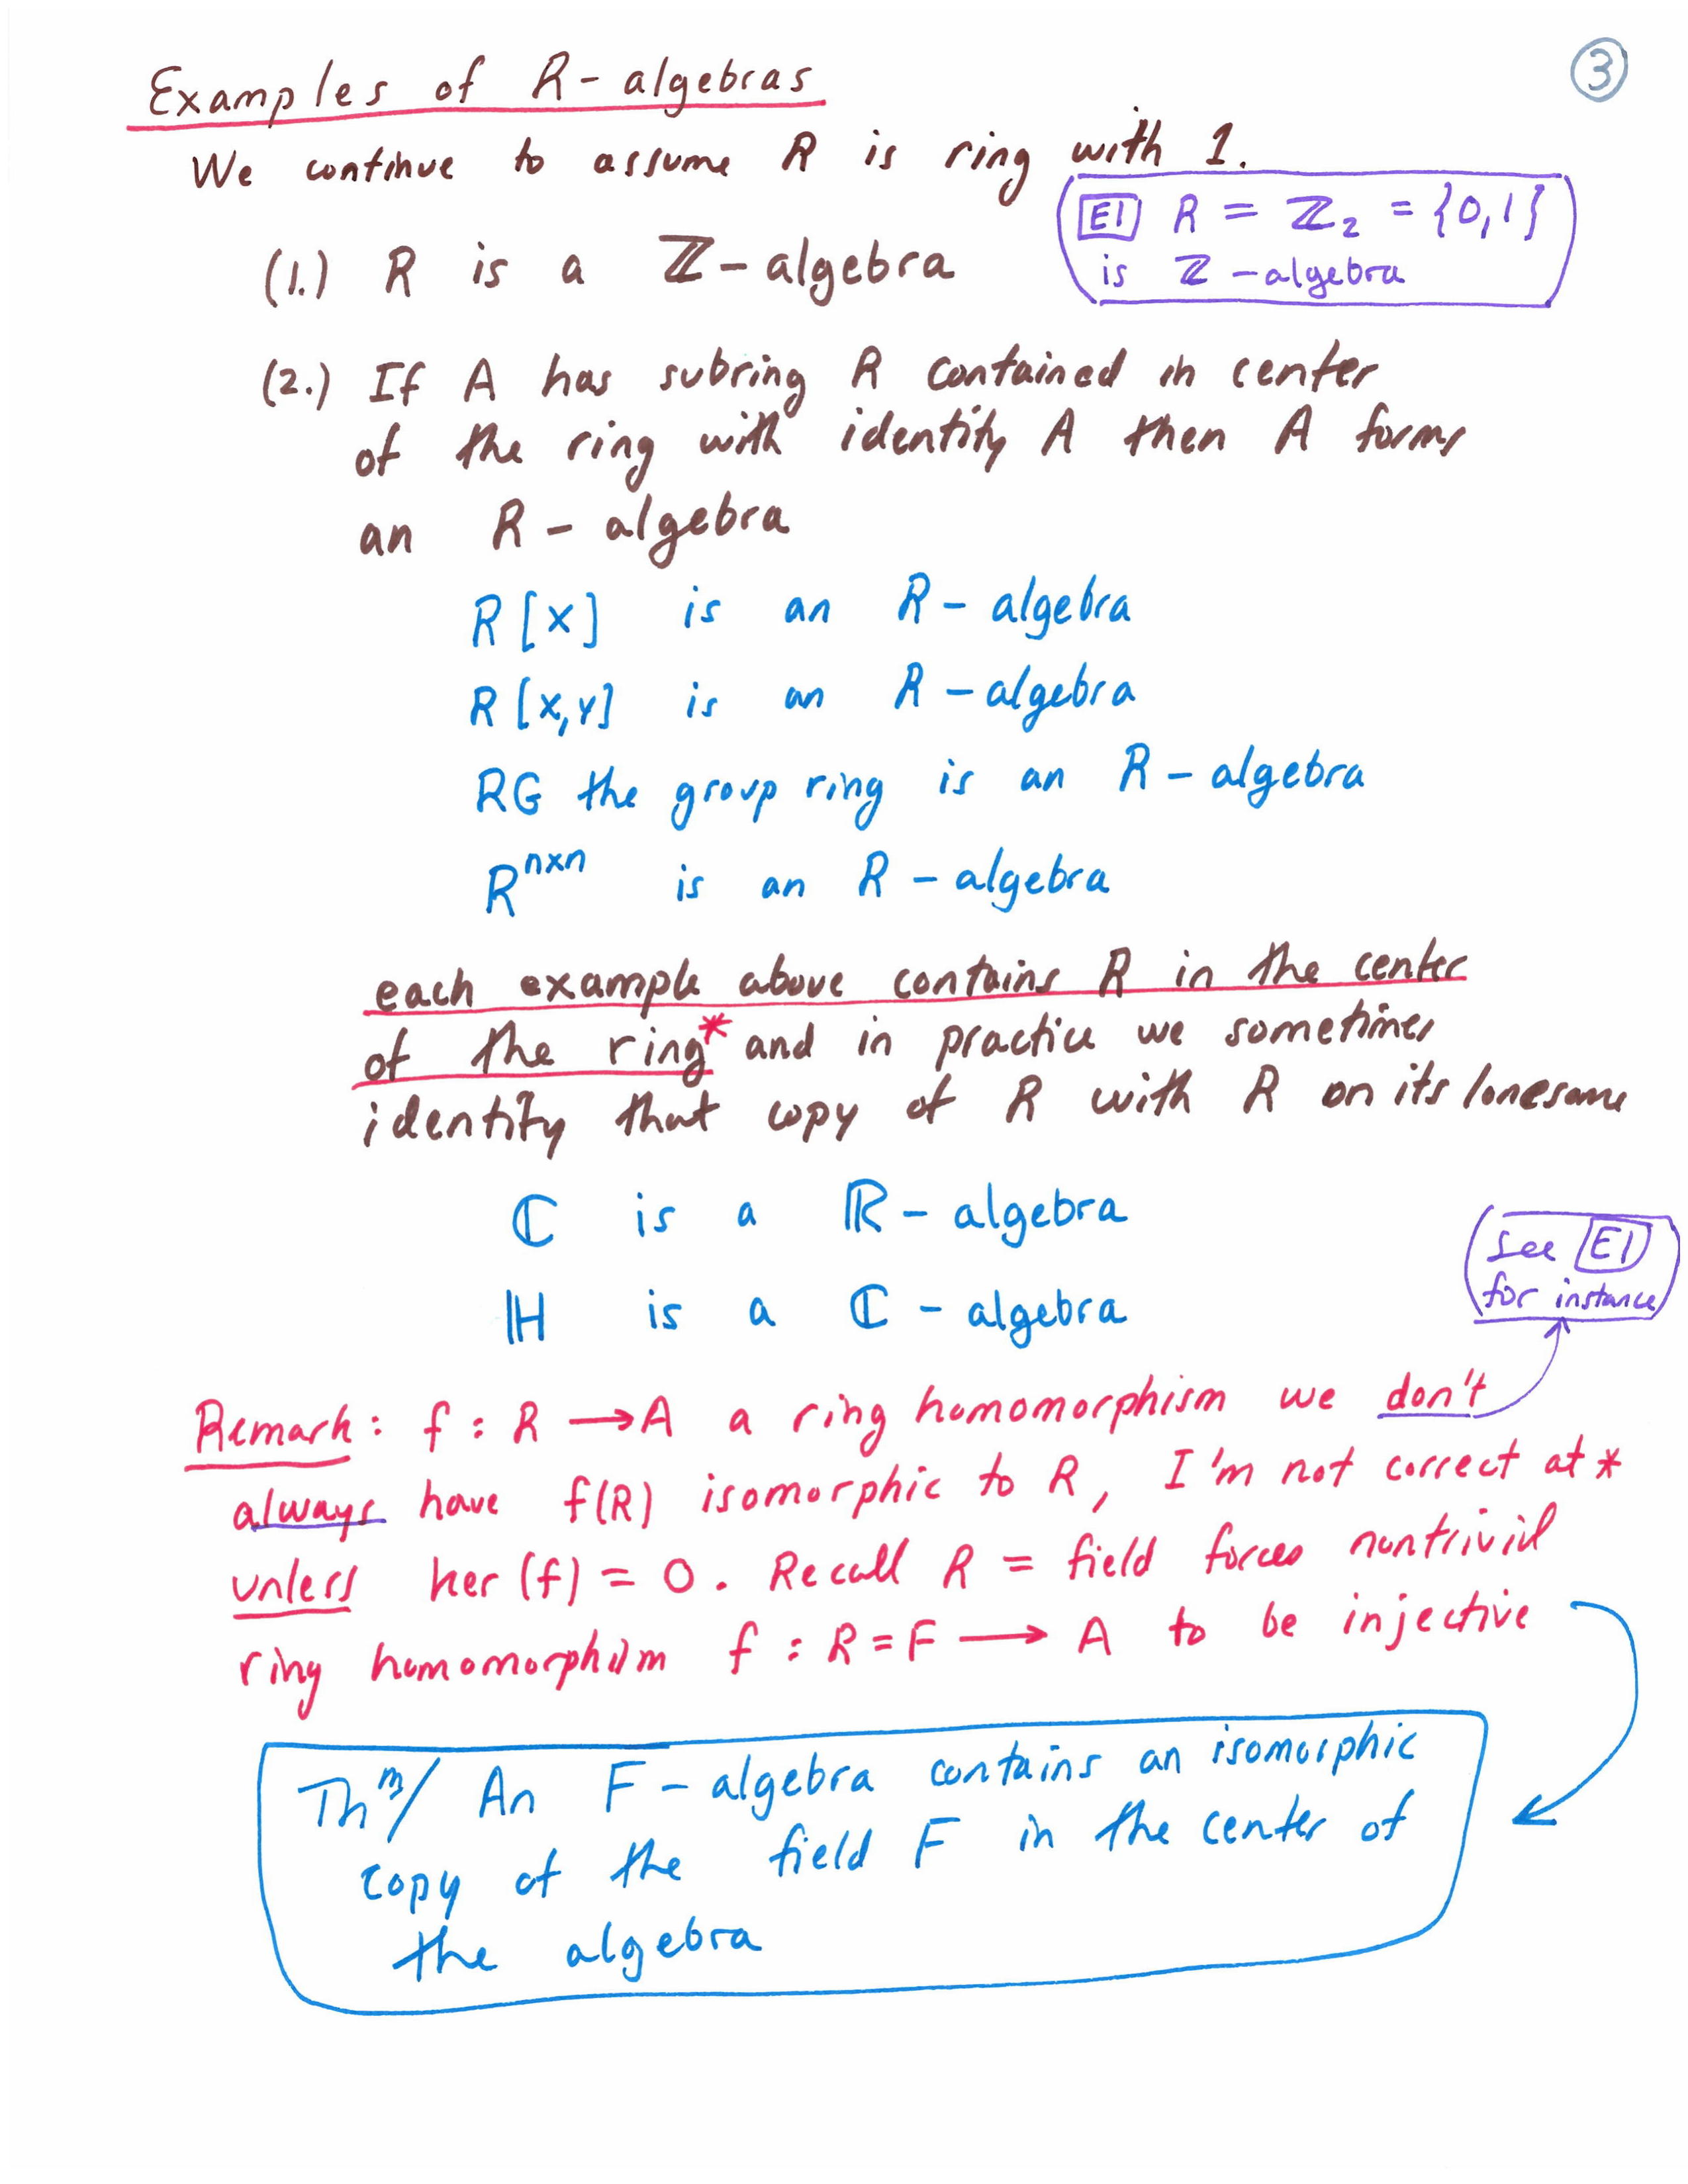 ③
Examples of R-algebras
We continue to assume R is ring with 1.
E1 R = ℤ₂ = {0,1}
is ℤ-algebra
(1.) R is a ℤ-algebra
(2.) If A has subring R contained in center
of the ring with identity A then A forms
an R-algebra
R[x] is an R-algebra
R[x,y] is an R-algebra
RG the group ring is an R-algebra
Rⁿˣⁿ is an R-algebra
each example above contains R in the center
of the ring* and in practice we sometimes
identify that copy of R with R on its lonesome
ℂ is a ℝ-algebra
ℍ is a ℂ-algebra
see E1
for instance
Remark: f : R → A a ring homomorphism we don't
always have f(R) isomorphic to R, I'm not correct at *
unless ker(f) = 0. Recall R = field forces nontrivial
ring homomorphism f : R = F → A to be injective
Thᵐ/ An F-algebra contains an isomorphic
copy of the field F in the center of
the algebra